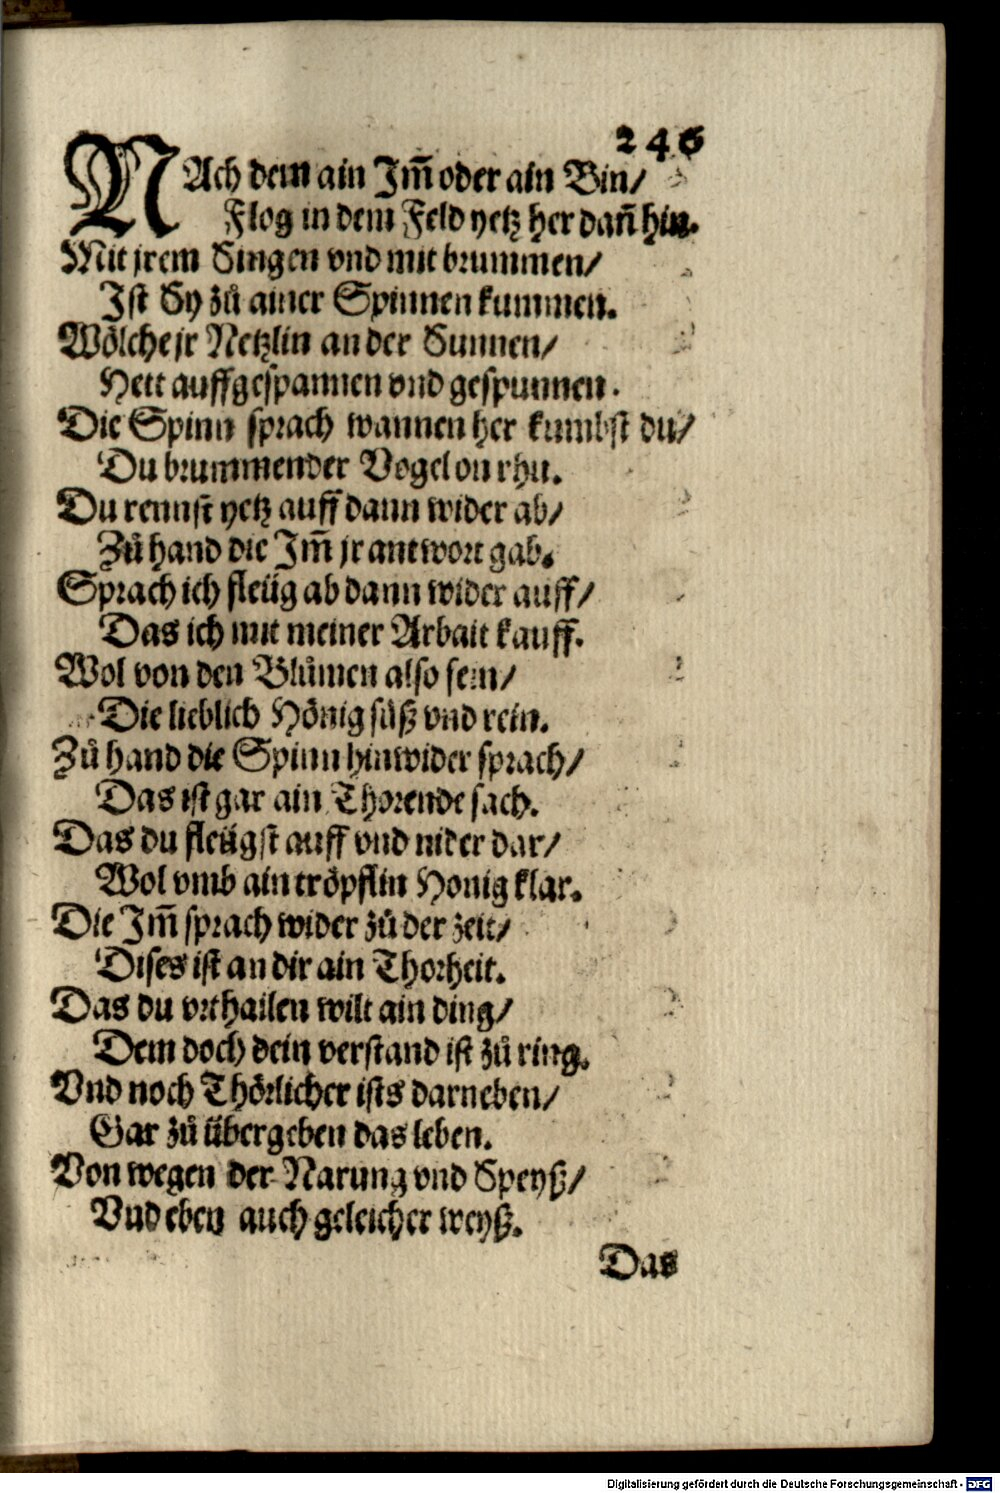 246
NAch dem ain Im̃ oder ain Bin/
Flog in dem Feld yetz her dañ hin.
Mit jrem Singen vnd mit brummen/
Ist Sy zů ainer Spinnen kummen.
Wölche jr Netzlin an der Sunnen/
Hett auffgespannen vnd gespunnen.
Die Spinn sprach wannen her kumbst du/
Du brummender Vogel on rhu.
Du rennst yetz auff dann wider ab/
Zů hand die Im̃ jr antwort gab.
Sprach ich fleüg ab dann wider auff/
Das ich mit meiner Arbait kauff.
Wol von den Blůmen also fein/
Die lieblich Hönig süß vnd rein.
Zů hand die Spinn hinwider sprach/
Das ist gar ain Thorende sach.
Das du fleügst auff vnd nider dar/
Wol vmb ain tröpflin Honig klar.
Die Im̃ sprach wider zů der zeit/
Dises ist an dir ain Thorheit.
Das du vrthailen wilt ain ding/
Dem doch dein verstand ist zů ring.
Vnd noch Thörlicher ists darneben/
Gar zů übergeben das leben.
Von wegen der Narung vnd Speyß/
Vnd eben auch geleicher weyß.
Das
Digitalisierung gefördert durch die Deutsche Forschungsgemeinschaft - DFG